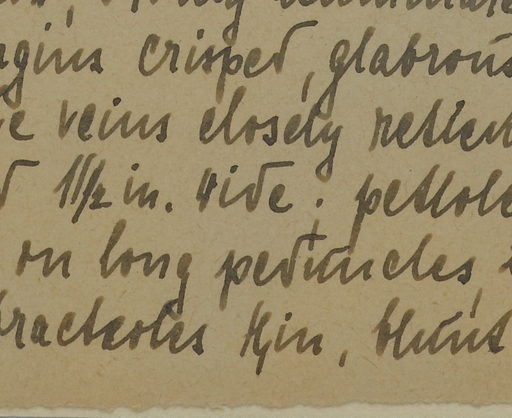 argins crisped, glabrous
veins closely reticu
1 1/2 in. wide; petiole
on long peduncles,
bracteoles in, blunt